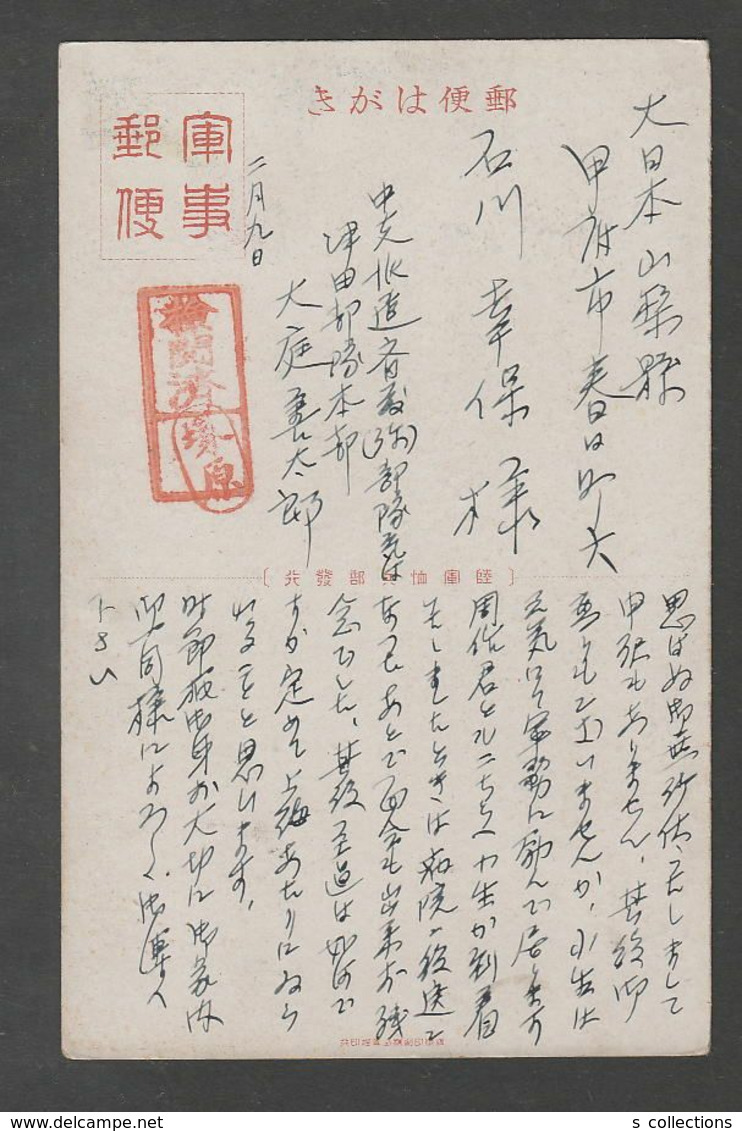 郵便はがき
軍事
郵便
大日本山梨縣
甲府市春日町六
石川幸保様
中支派遣 部隊気付
津田部隊本部
大庭喜太郎
二月九日
検閲済
塚原
陸軍恤兵部發行
思はぬ御無沙汰いたしまして
申訳もありません、其後御
変りもございませんか、小生は
元気にて軍務に励んで居ります
周作君とハこちらへ小生が到着
しましたときは病院へ後送と
なつてあとで面会も出来ず残
念でした、其後 は如何で
すか定めて上海あたりに居ら
れることと思ひます、
時節柄御身お大切に御家内
御一同様によろしく御傳へ
下さい
s collections